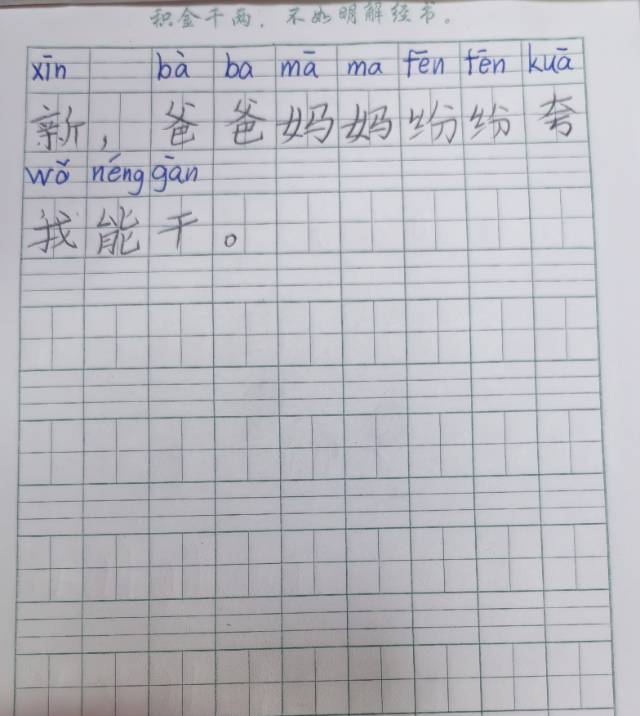 积金千两，不如明解经书。
xīn bà ba mā ma fēn fēn kuā
新，爸爸妈妈纷纷夸
wǒ néng gàn
我能干。